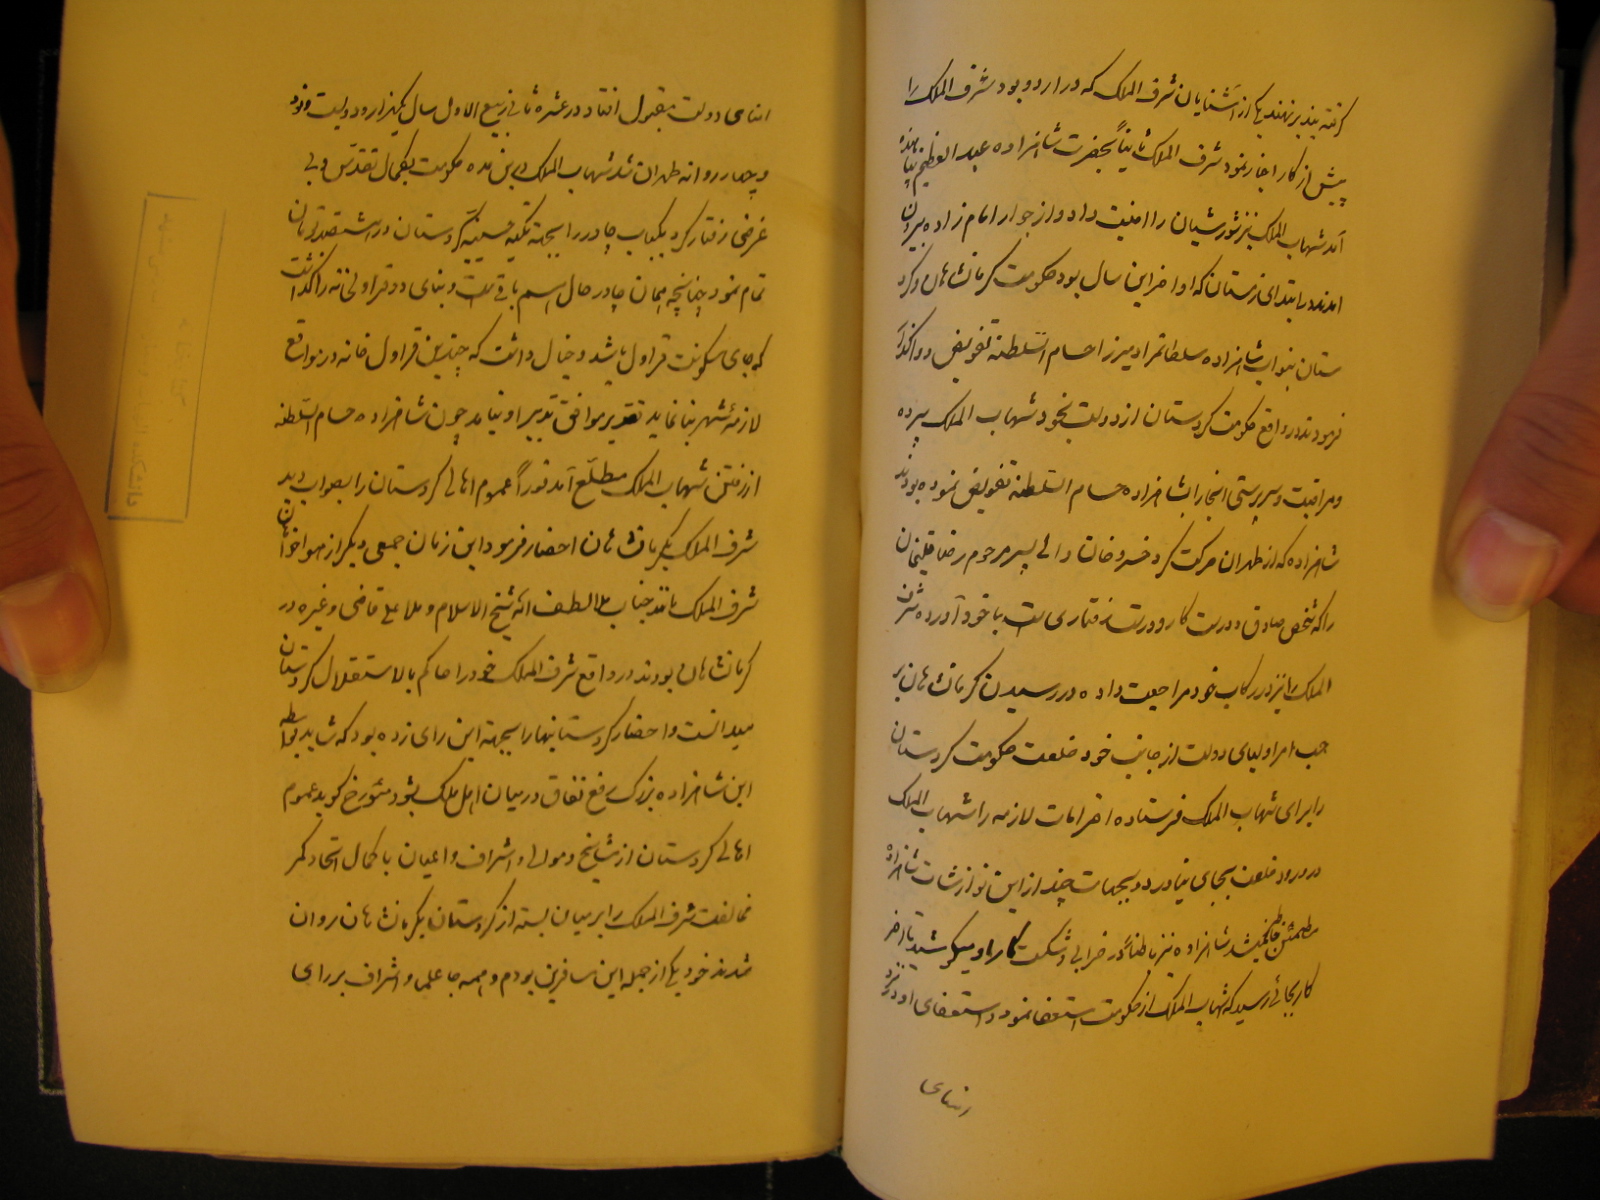 گرفته بند برنهند یکی از آشنایان شرف الملک که در اردو بود شرف الملک را
پیش از کار اخبار نمود شرف الملک ثانیاً بحضرت شاهزاده عبدالعظیم پناهنده
آمد شهاب الملک نیز شورشیان را امنیت داد و از جوار امام زاده بیرون
آمدند در ابتدای زمستان که اواخر این سال بود حکومت کرمانشاهان و کرد
ستان بنواب شاهزاده سلطانمراد میرزا حسام السّلطنه تفویض و واگذار
فرمودند در واقع حکومت کردستان از دولت بخود شهاب الملک سپرده
و مراقبت و سرپرستی آنجا را بشاهزاده حسام السّلطنه تفویض نموده بودند
شاهزاده که از طهران حرکت کرد خسرو خان والی پسر مرحوم رضا قلیخان
را که شخص صادق و درست کار و درست رفتاری است با خود آورده شرف
الملک را نیز در رکاب خود مراجعت داده در رسیدن کرمانشاهان بر
حسب امر اولیای دولت از جانب خود خلعت حکومت کردستان
را برای شهاب الملک فرستاده احترامات لازمه را شهاب الملک
در ورود خلعت بجای نیاورد و بجهات چند از این نوازشات شاهزاده
مطمئن خاطر نمیشد شاهزاده نیز باطناً در خرابی و شکست کار او میکوشید تا آخر
کار بجائی رسید که شهاب الملک از حکومت استعفا نمود و استعفای او در نزد
امنای
امنای دولت مقبول افتاد در عشره ثانی ربیع الاول سال یکهزار و دویست و نود
و چهار روانه طهران شد شهاب الملک در این مده حکومت بکمال تقدّس و بی
غرضی رفتار کرد یکباب چادر را بجهة تکیه حسینیّه کردستان در تومان
تمام نمود چنانچه همان چادر حال اسم باقی است و بنای دو قراولخانه را گذاشت
که جای سکونت قراول باشد و خیال داشت که چندین قراول خانه در مواقع
لازمهٔ شهر بنا نماید تقدیر موافق تدبیر او نیامد چون شاهزاده حسام السّلطنه
از رفتن شهاب الملک مطلّع آمد فوراً عموم اهالی کردستان را بصواب دید
شرف الملک بکرمانشاهان احضار فرمود این زمان جمعی دیگر از هواخواهان
شرف الملک مانند جناب ملا لطف الله شیخ الاسلام و ملا علی قاضی و غیره در
کرمانشاهان بودند در واقع شرف الملک خود را حاکم بالاستقلال کردستان
میدانست و احضار کردستانیها را بجهة این رای زده بود که شاید بواسطه
این شاهزاده بزرگ رفع نفاق در میان اهل ملک بشود مئورخ گوید عموم
اهالی کردستان از مشایخ و موالی و اشراف و اعیان با کمال اتحاد کمر
مخالفت شرف الملک را بر میان بسته از کردستان بکرمانشاهان روان
شدند خود یکی از جمله این مسافرین بودم و همه جا علما و اشراف بر رای